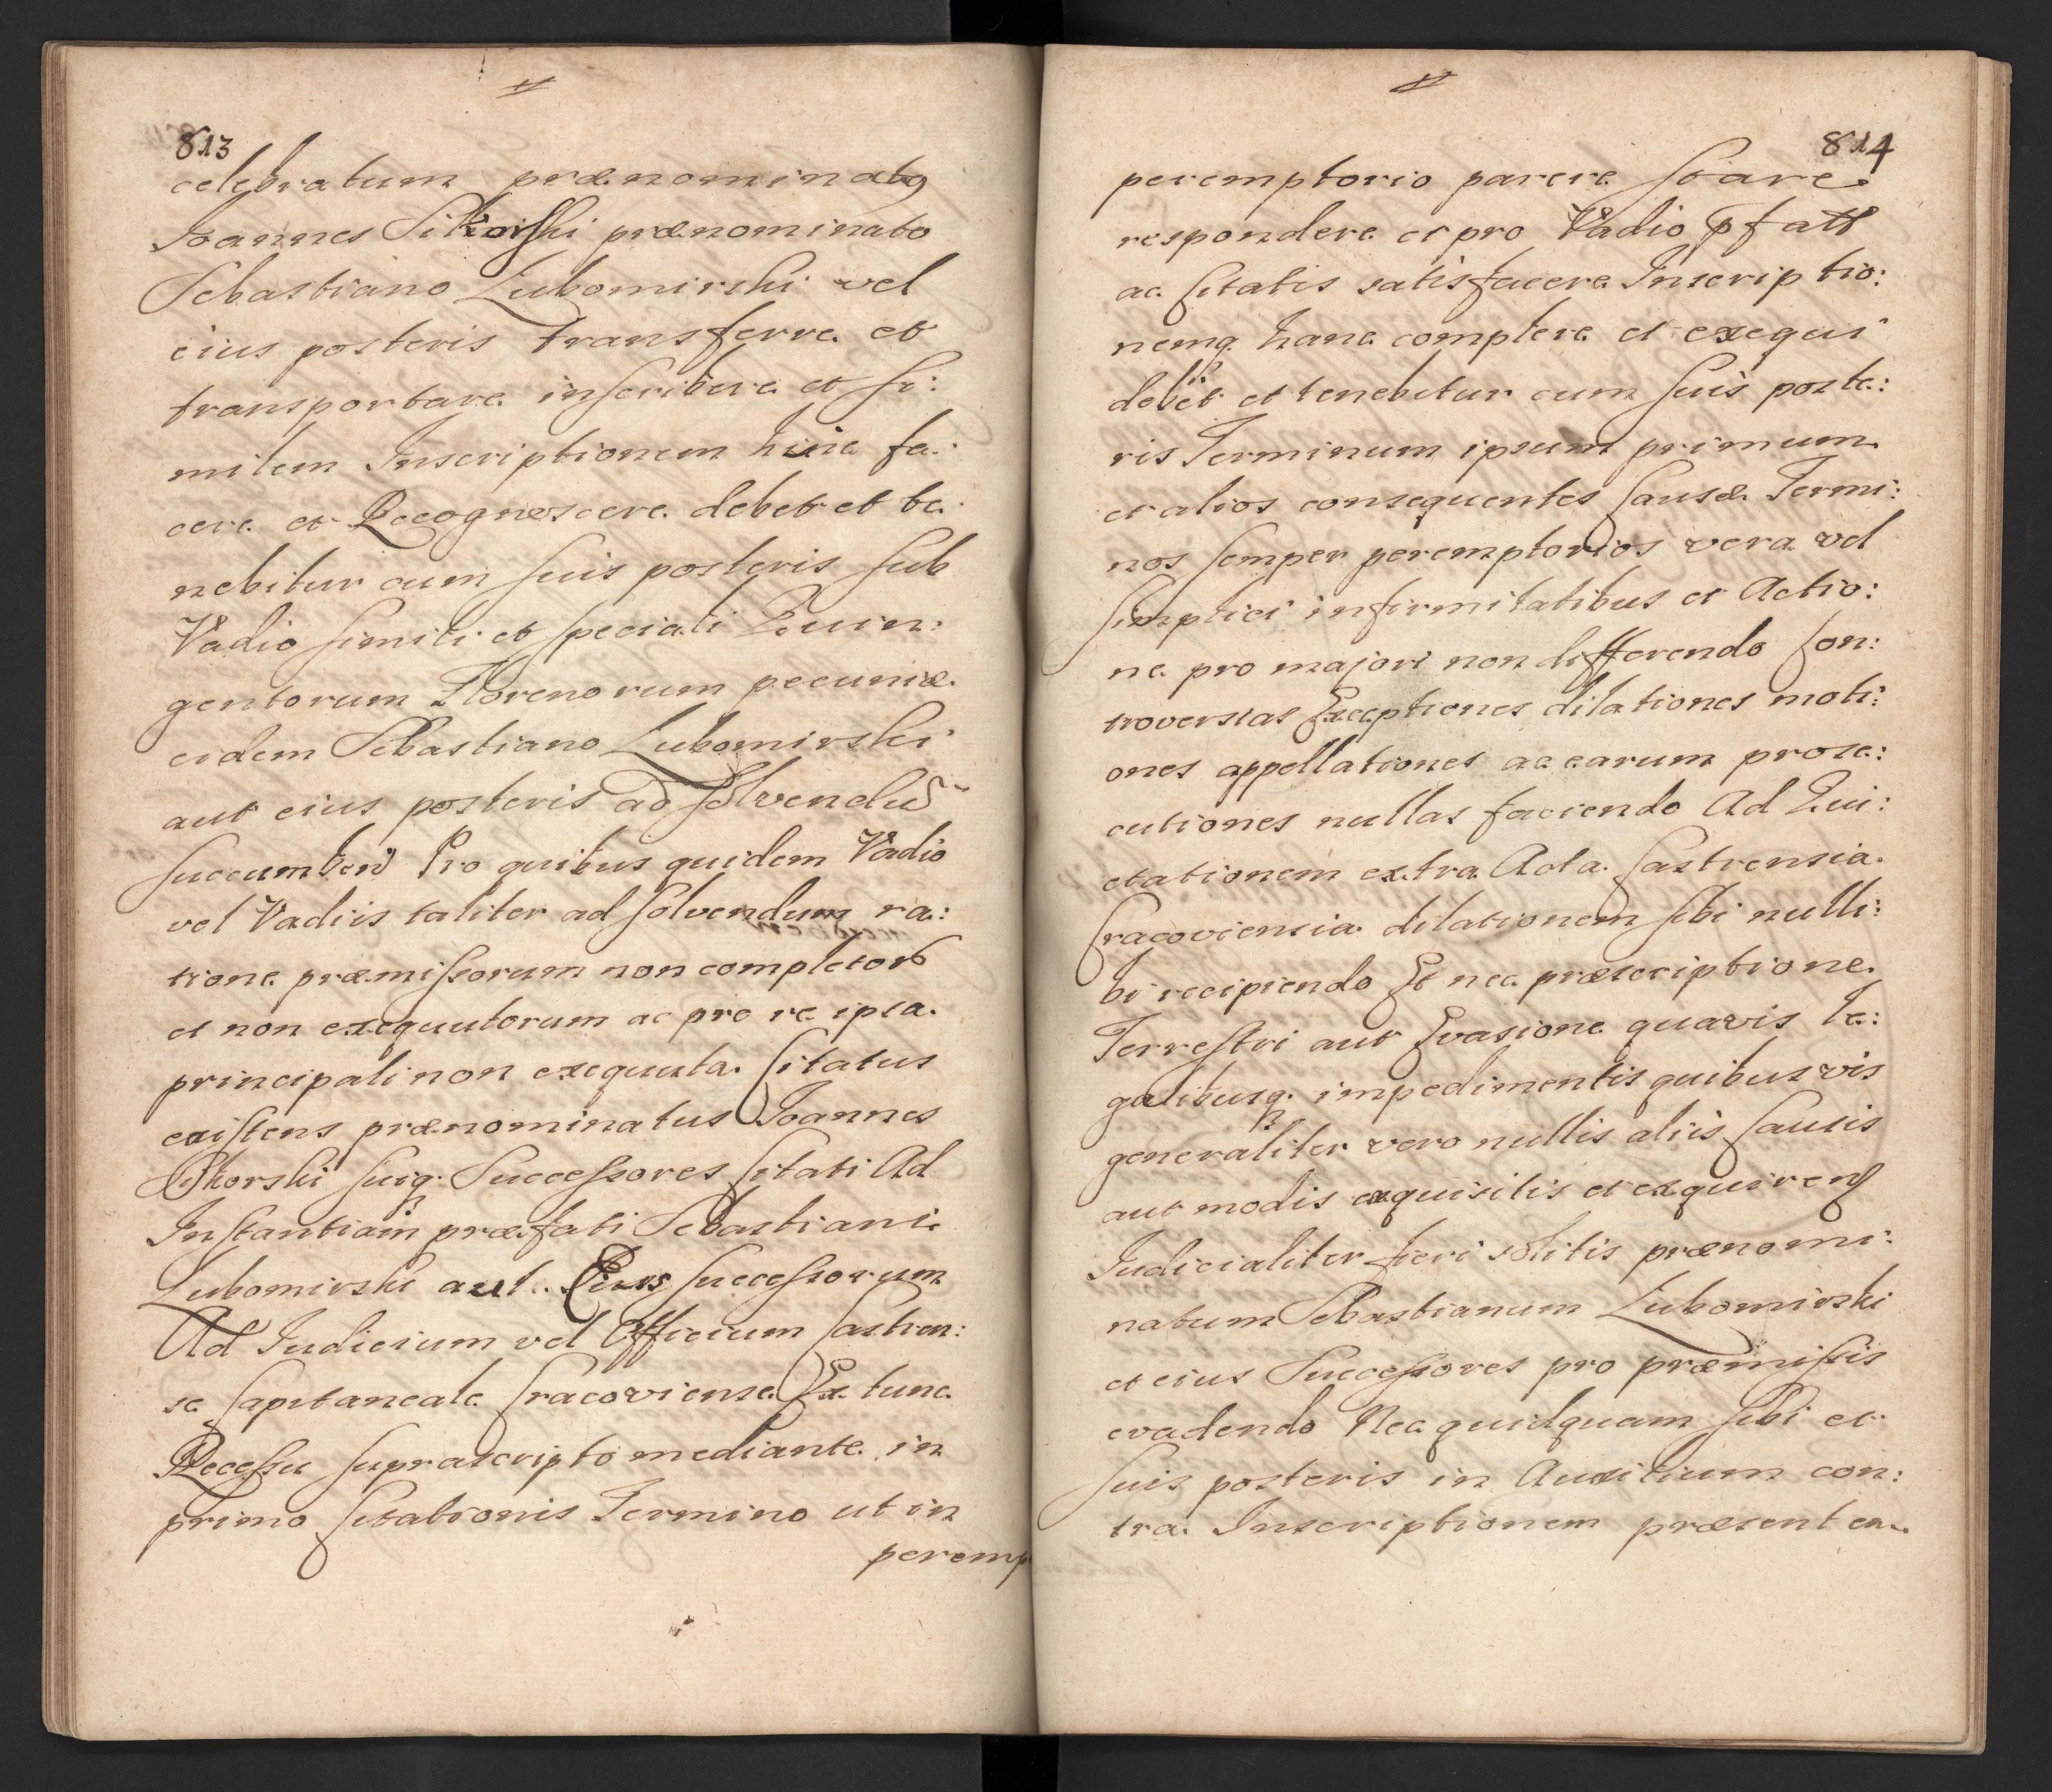 813
celebratum prænominatq
Joannes Sikorski prænominato
Sebastiano Lubomirski vel
eius posteris transferre et
transportare inscribere et si:
milem Inscriptionem huic fa:
cere et Recognoscere debet et te:
nebitur cum suis posteris sub
Vadio simili et speciali Quin:
gentorum Florenorum pecuniæ
eidem Sebastiano Lubomirski
aut eius posteris ad solvendũ
succumben Pro quibus quidem Vadio
vel Vadiis taliter ad solvendum ra:
tione præmissorum non completorũ
et non exequutorum ac pro re ipsa
principali non exequuta Citatus
existens prænominatus Joannes
Sikorski suiq. Successores Citati Ad
Instantiam præfati Sebastiani
Lubomirski aut Eius successorum
Ad Judicium vel Officium Castren:
se Capitaneale Cracoviense Ex tunc
Recessu suprascripto mediante in
primo Citationis Termino ut in
peremp
814
peremptorio parere stare
respondere et pro Vadio
ac Citatis satisfacere Inscriptio:
nemq. hanc complere et exequi
debet et tenebitur cum suis poste:
ris Terminum ipsum primum
et alios consequentes Causæ Termi:
nos semper peremptorios vera vel
simplici infirmitatibus et Actio:
ne pro majori non differendo Con:
troversias Exceptiones dilationes moti:
ones appellationes ac earum prose:
cutiones nullas faciendo Ad Qui:
etationem extra Acta Castrensia
Cracoviensia dilationem sibi nulli:
bi recipiendo Et nec præscriptione
Terrestri aut Evasione quavis le:
galibusq. impedimentis quibusvis
generaliter vero nullis aliis Causis
aut modis exquisitis et exquiren
Judicialiter fieri solitis prænomi:
natum Sebastianum Lubomirski
et eius Successores pro præmissis
evadendo Nec quidquam sibi et
suis posteris in Auxilium con:
tra Inscriptionem præsentem